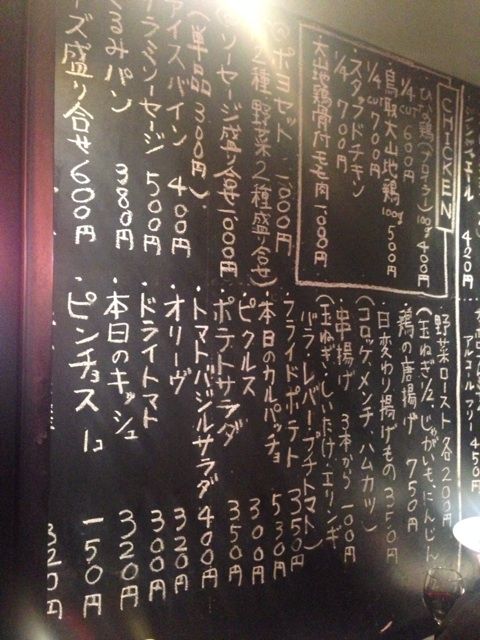 CHICKEN
ひな鶏(ブロイラー)100g 400円
1/4cut 600円
・鳥取大山地鶏 100g 500円
1/4cut 700円
・スタッフドチキン
1/4 700円
大山地鶏骨付モモ肉 1,000円
ポヨセット 1,000円
2種 野菜2種盛り合せ)
ソーセージ盛り合せ 1,000円
(単品 300円)
アイスバイン 400円
サラミソーセージ 500円
くるみパン 380円
ーズ盛り合せ 600円
420円
アルコールフリー 450円
野菜ロースト 各200円
(玉ねぎ1/2、じゃがいも、にんじん
鶏の唐揚げ 750円
・日変わり揚げもの 350円
(コロッケ、メンチ、ハムカツ)
・串揚げ 3本から 100円
(玉ねぎ・しいたけ・エリンギ
バラ・レバー・プチトマト)
・フライドポテト 350円
・本日のカルパッチョ 530円
・ピクルス 300円
・ポテトサラダ 350円
・トマトバジルサラダ 400円
・オリーヴ 320円
・ドライトマト 300円
・本日のキッシュ 320円
・ピンチョス 1コ 150円
320円